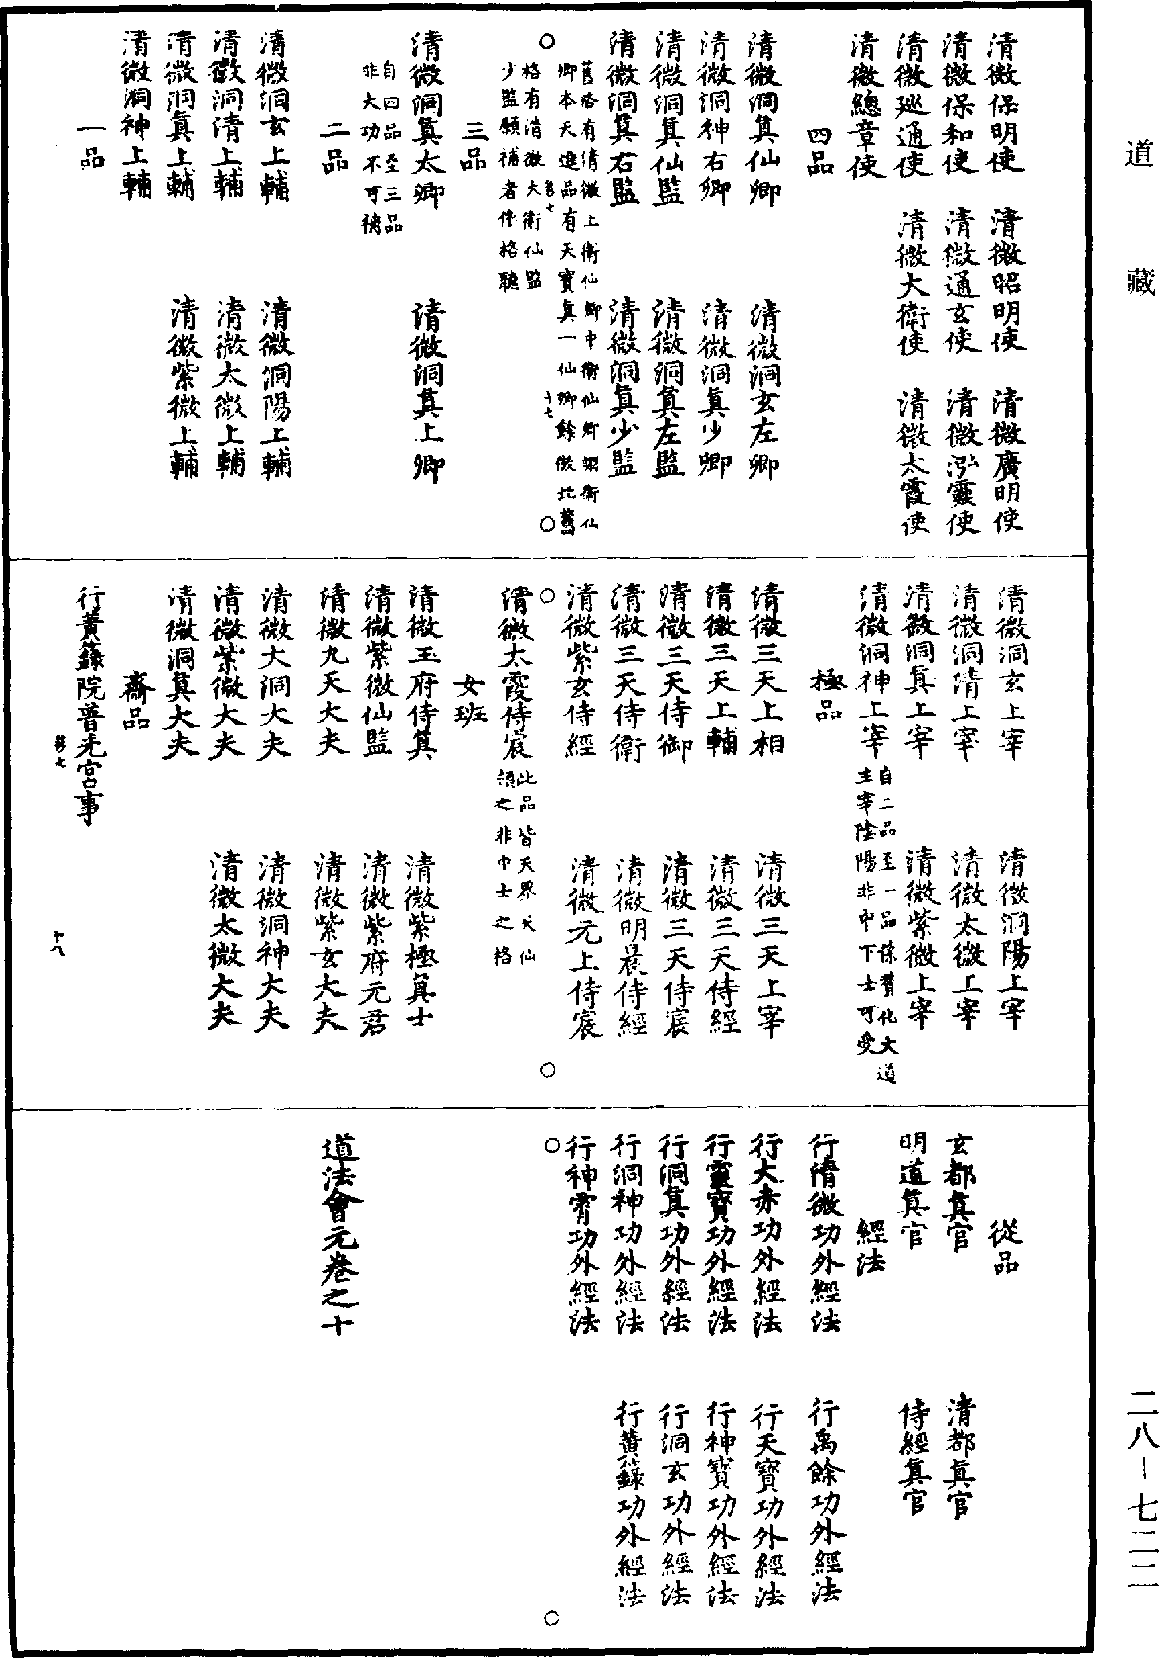 道藏
清微保明使 清微昭明使 清微廣明使
清微保和使 清微通玄使 清微泓靈使
清微巡通使 清微大衛使 清微太霞使
清微總章使
四品
清微洞真仙卿 清微洞玄左卿
清微洞神右卿 清微洞真少卿
清微洞真仙監 清微洞真左監
清微洞真右監 清微洞真少監
舊格有清微上衛仙卿中衛仙卿翊衛仙
卿本天選品有天寶真一仙卿餘倣此舊
格有清微大衛仙監
少監願補者停格聽
三品
清微洞真太卿 清微洞真上卿
自四品至三品
非大功不可補
二品
清微洞玄上輔 清微洞陽上輔
清微洞清上輔 清微太微上輔
清微洞真上輔 清微紫微上輔
清微洞神上輔
一品
清微洞玄上宰 清微洞陽上宰
清微洞清上宰 清微太微上宰
清微洞真上宰 清微紫微上宰
清微洞神上宰
自二品至一品係贊化大道
主宰陰陽非中下士可受
極品
清微三天上相 清微三天上宰
清微三天上輔 清微三天侍經
清微三天侍御 清微三天侍宸
清微三天侍衛 清微明晨侍經
清微紫玄侍經 清微元上侍宸
清微太霞侍宸
此品皆天界天仙
領之非中士之格
女班
清微玉府侍真 清微紫極真士
清微紫微仙監 清微紫府元君
清微九天大夫 清微紫玄大夫
清微大洞大夫 清微洞神大夫
清微紫微大夫 清微太微大夫
清微洞真大夫
齋品
行黃籙院普光宮事
從品
玄都真官 清都真官
明道真官 侍經真官
經法
行清微功外經法 行禹餘功外經法
行大赤功外經法 行天寶功外經法
行靈寶功外經法 行神寶功外經法
行洞真功外經法 行洞玄功外經法
行洞神功外經法 行黃籙功外經法
行神霄功外經法
道法會元卷之十
二八－七二二